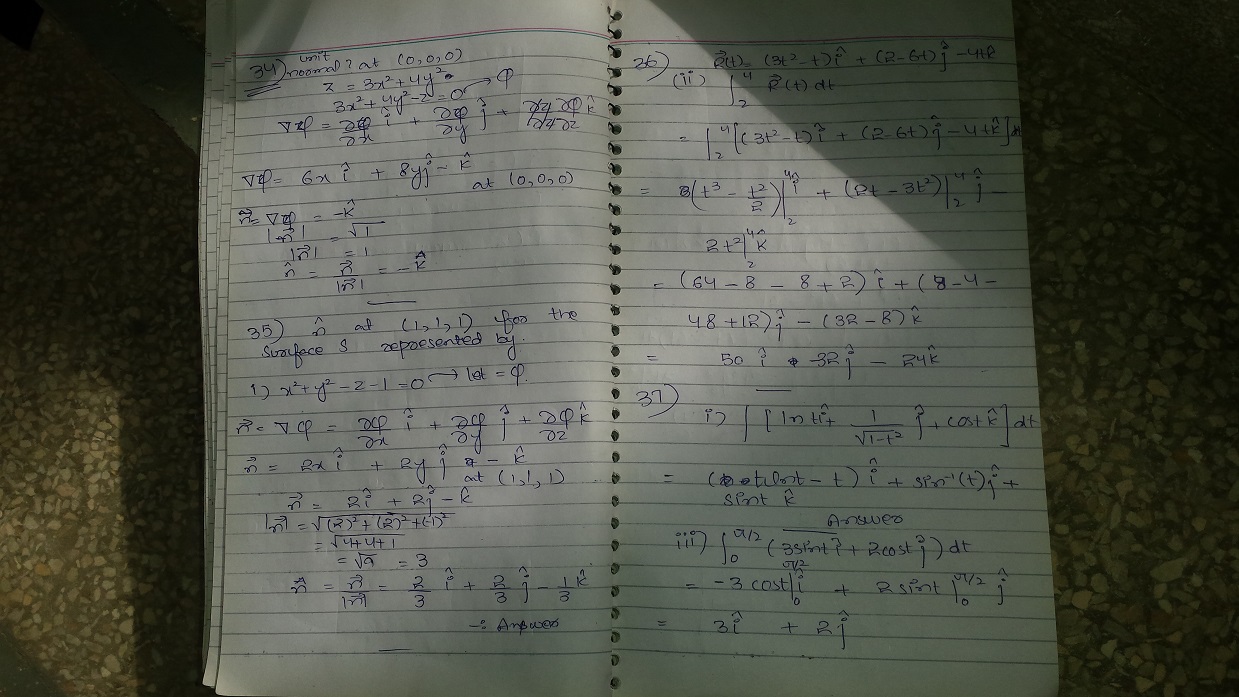 34) unit normal? at (0,0,0)
z = 3x² + 4y²
3x² + 4y² - z = 0 → φ
∇φ = ∂φ/∂x î + ∂φ/∂y ĵ + ∂φ/∂z k̂
∇φ = 6x î + 8y ĵ - k̂
at (0,0,0)
n⃗ = ∇φ = -k̂
|n⃗| = √1
|n⃗| = 1
n̂ = n⃗/|n⃗| = -k̂
35) n̂ at (1,1,1) for the
surface S represented by.
1) x² + y² - z - 1 = 0 → let = φ.
n⃗ = ∇φ = ∂φ/∂x î + ∂φ/∂y ĵ + ∂φ/∂z k̂
n⃗ = 2x î + 2y ĵ - k̂
at (1,1,1)
n⃗ = 2î + 2ĵ - k̂
|n⃗| = √(2)² + (2)² + (-1)²
= √4+4+1
= √9 = 3
n̂ = n⃗/|n⃗| = 2/3 î + 2/3 ĵ - 1/3 k̂
-: Answer
26) R⃗(t) = (3t² - t) î + (2 - 6t) ĵ - 4tk̂
(ii) ∫₂⁴ R⃗(t) dt
= ∫₂⁴ [(3t² - t) î + (2 - 6t) ĵ - 4tk̂] dt
= (t³ - t²/2)|₂⁴ î + (2t - 3t²)|₂⁴ ĵ -
2t²|₂⁴ k̂
= (64 - 8 - 8 + 2) î + (8 - 4 -
48 + 12) ĵ - (32 - 8) k̂
= 50 î - 32 ĵ - 24k̂
37)
i) ∫ [lnt î + 1/√1-t² ĵ + cost k̂] dt
= (t lnt - t) î + sin⁻¹(t) ĵ +
sint k̂
Answer
iii) ∫₀^π/2 (3sint î + 2cost ĵ) dt
= -3 cost|₀^π/2 î + 2 sint|₀^π/2 ĵ
= 3î + 2ĵ